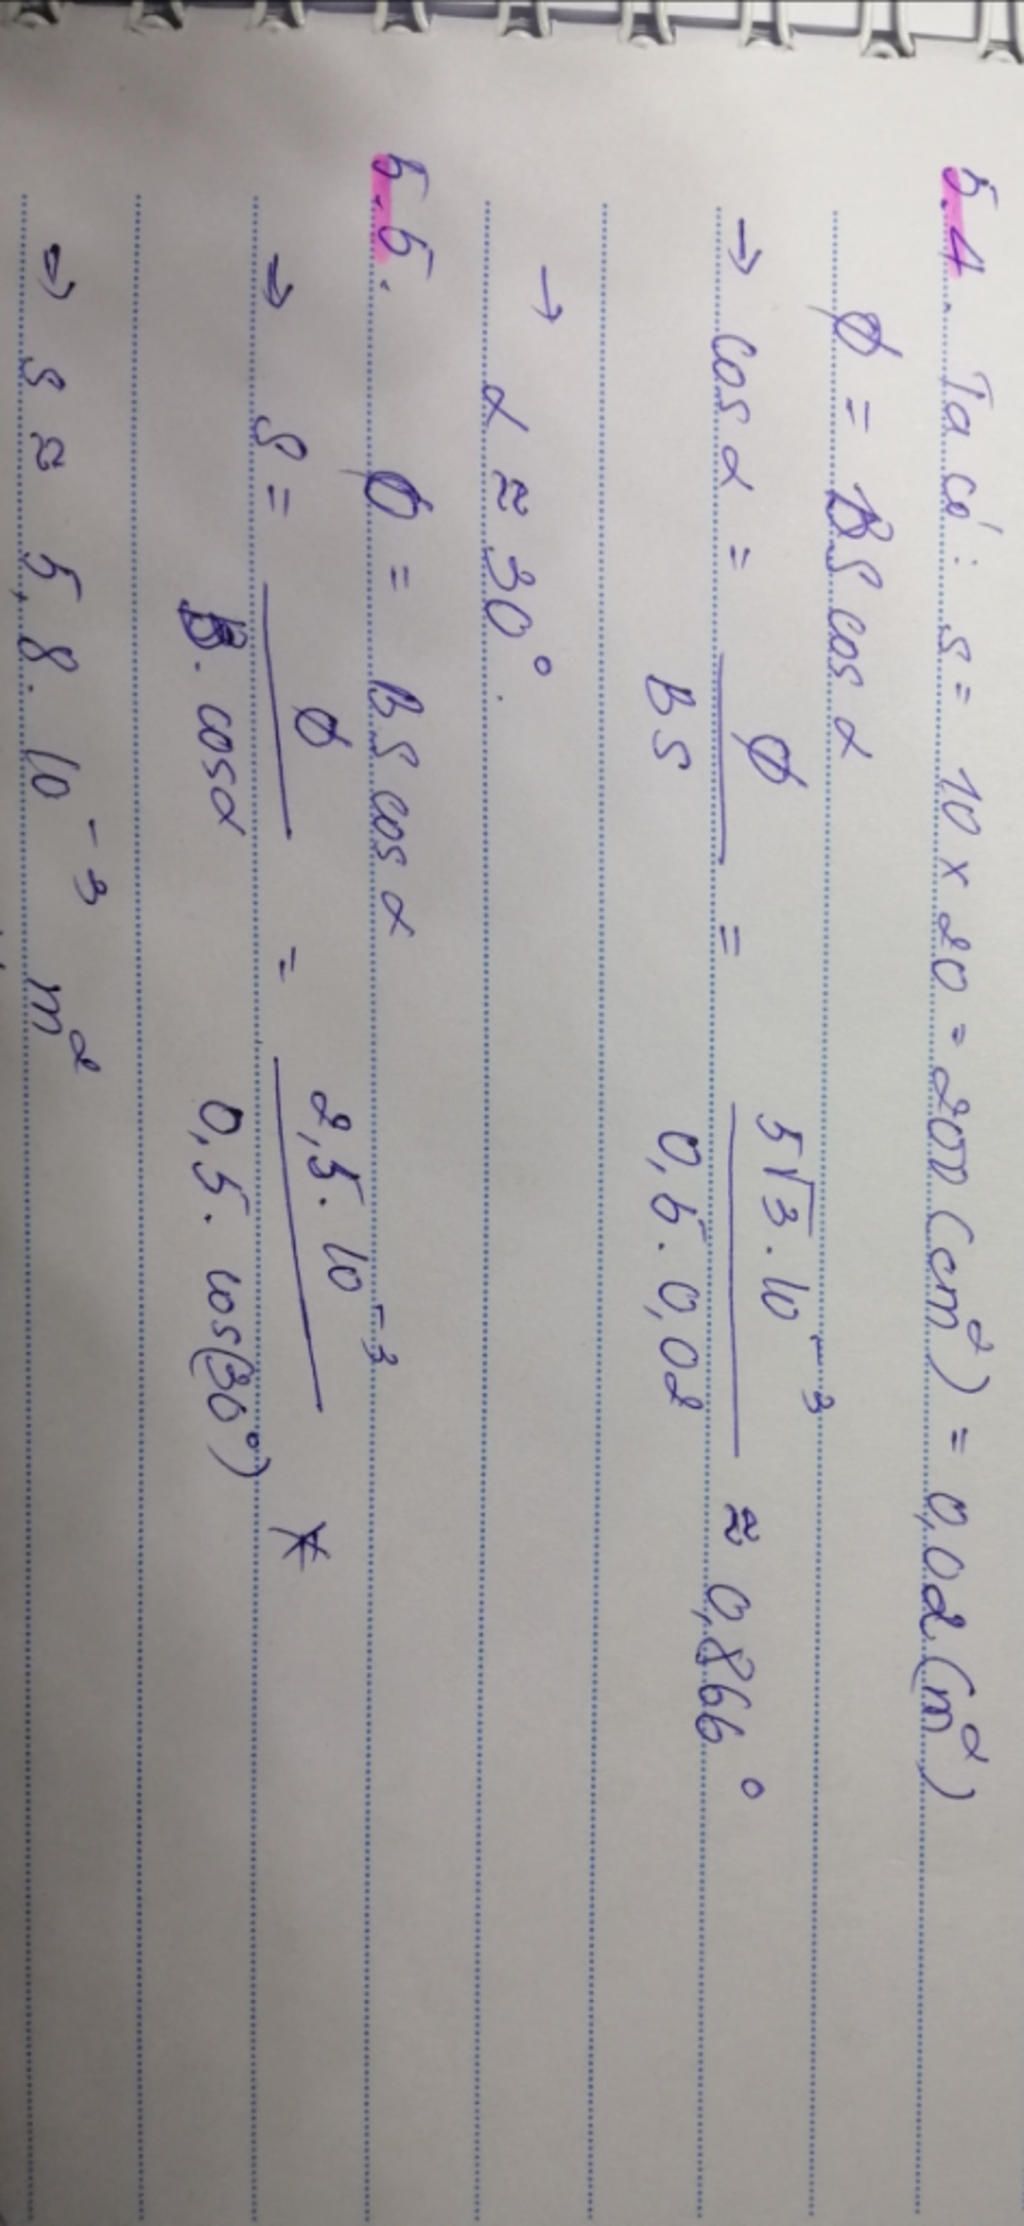 5.4. Ta có: S = 10 x 20 = 200 (cm²) = 0,02 (m²)
Ø = BS cos α
→ cos α = Ø / BS = 5√3 . 10⁻³ / 0,5 . 0,02 ≈ 0,866°
→ α ≈ 30°.
5.5. Ø = BS cos α
→ S = Ø / B. cosα = 2,5. 10⁻³ / 0,5. cos(30°) *
⇒ S ≈ 5,8. 10⁻³ m²